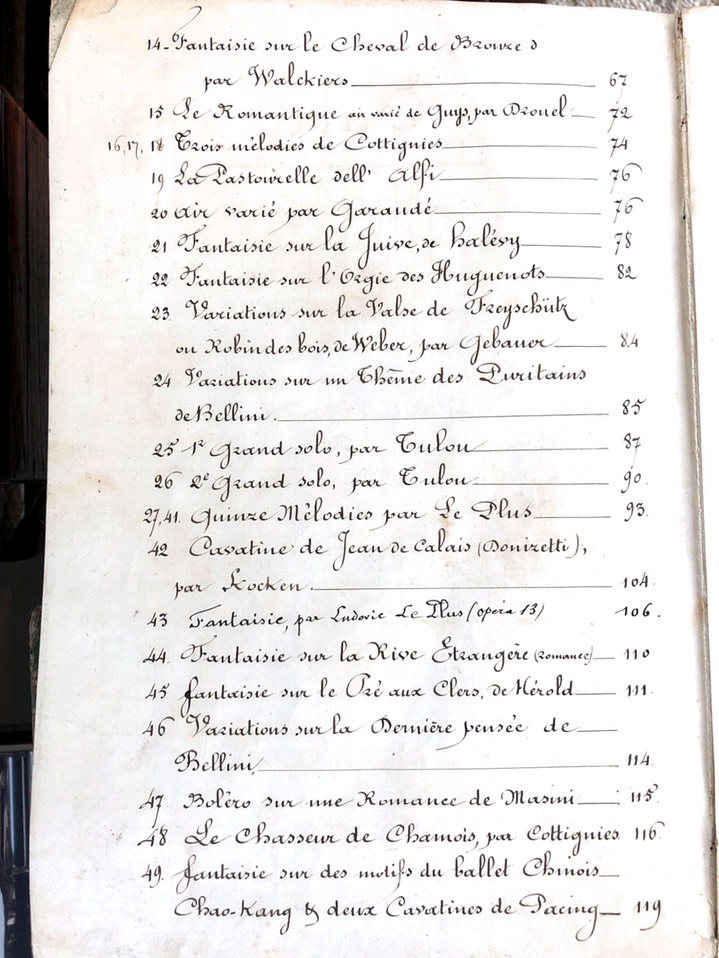 14 - Fantaisie sur le Cheval de Bronze
par Walckiers 67
15 Le Romantique air varié de Guys, par Drouel 72
16, 17, 18 Trois mélodies de Cottignies 74
19 La Pastourelle dell' Alfi 76
20 Air varié par Garaudé 76
21 Fantaisie sur la Juive, de halévy 78
22 Fantaisie sur l'Orgie des Huguenots 82
23 Variations sur la Valse de Freyschütz
ou Robin des bois, de Weber, par Gebauer 84
24 Variations sur un Thême des Puritains
de Bellini. 85
25 1r Grand solo, par Tulou 87
26 2e Grand solo, par Tulou 90
27, 41. Quinze Mélodies par Le Plus 93.
42 Cavatine de Jean de Calais (Donizetti),
par Kocken. 104
43 Fantaisie, par Ludovic Le Plus (opéra 13) 106.
44. Fantaisie sur la Rive Etrangère (romance) 110
45 fantaisie sur le Pré aux Clers, de Hérold 111.
46 Variations sur la Dernière pensée de
Bellini 114.
47. Boléro sur une Romance de Masini 115.
48 Le Chasseur de Chamois, par Cottignies. 116
49. fantaisie sur des motifs du ballet Chinois
Chao-Kang & deux Cavatines de Pacing 119